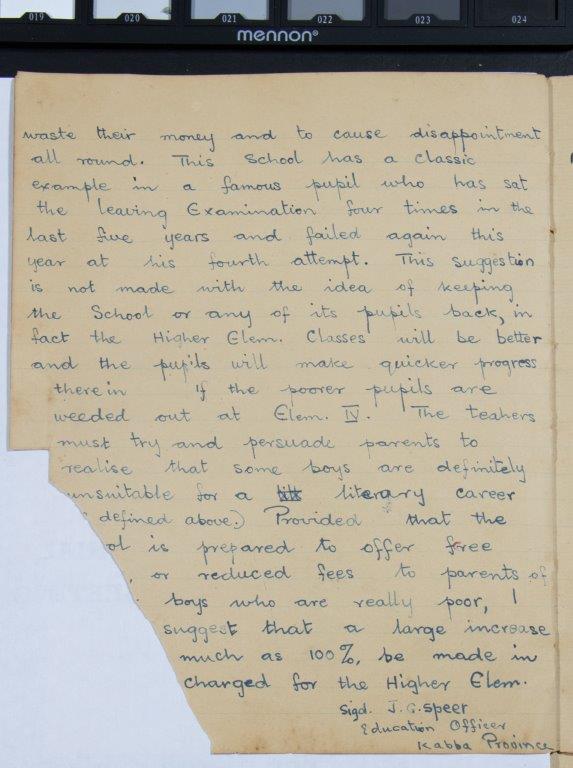 019 020 021 022 023 024
mennon®
waste their money and to cause disappointment
all round. This School has a classic
example in a famous pupil who has sat
the leaving Examination four times in the
last five years and failed again this
year at his fourth attempt. This suggestion
is not made with the idea of keeping
the School or any of its pupils back, in
fact the Higher Elem. Classes will be better
and the pupils will make quicker progress
therein if the poorer pupils are
weeded out at Elem. IV. The teahers
must try and persuade parents to
realise that some boys are definitely
unsuitable for a literary career
defined above.) Provided that the
ol is prepared to offer free
, or reduced fees to parents of
boys who are really poor, I
suggest that a large increase
much as 100%, be made in
charged for the Higher Elem.
Sigd. J.G. Speer
Education Officer
Kabba Province